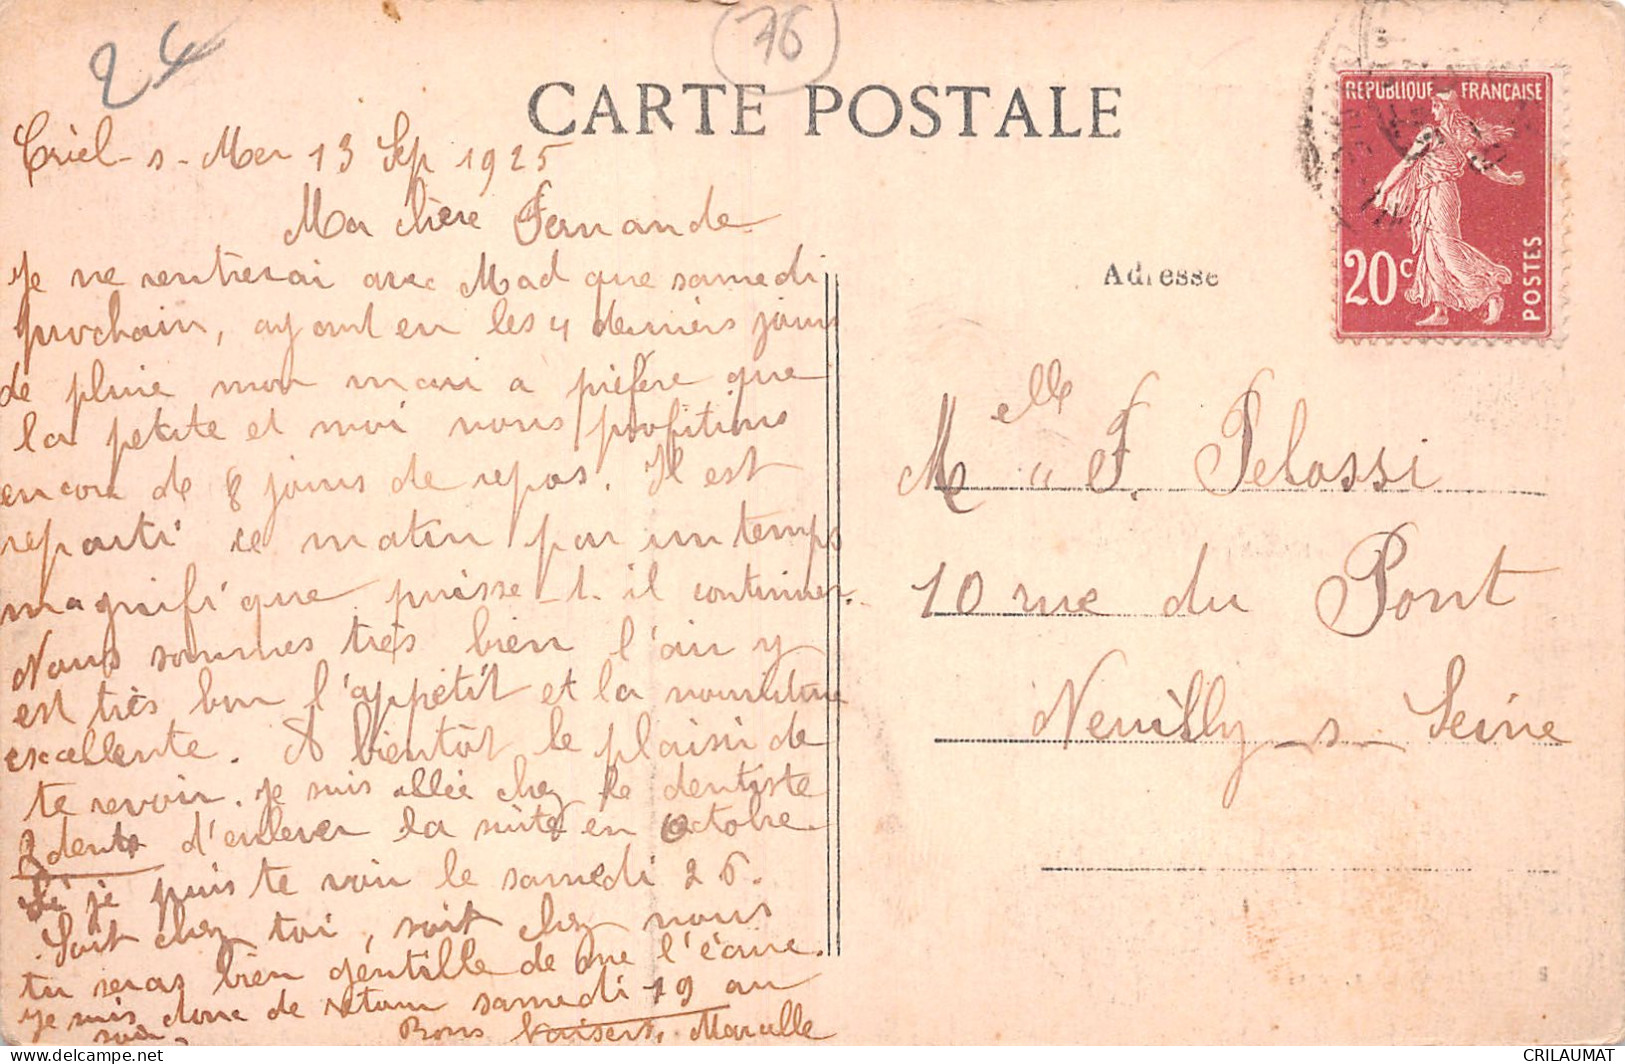 24
76
CARTE POSTALE
RÉPUBLIQUE FRANÇAISE
20c
POSTES
Criel-s-Mer 13 Sep 1925
Ma chère Fernande
Je ne rentrerai avec Mad que samedi
prochain, ayant eu les 4 derniers jours
de pluie mon mari a préfére que
la petite et moi nous profitions
encore de 8 jours de repos. Il est
reparti ce matin par un temps
magnifique puisse-t-il continuer.
Nous sommes très bien l'air y
est très bon l'appétit et la nourriture
excellente. A bientôt le plaisir de
te revoir. Je suis allée chez le dentiste
2 dents d'enlever la suite en Octobre
Si je puis te voir le samedi 26.
Soit chez toi, soit chez nous
tu seras bien gentille de me l'écrire.
Je suis donc de retour samedi 19 au
soir. Bons baisers, Marcelle
Adresse
Melle F. Pelossi
10 rue du Pont
Neuilly-s-Seine
CRILAUMAT